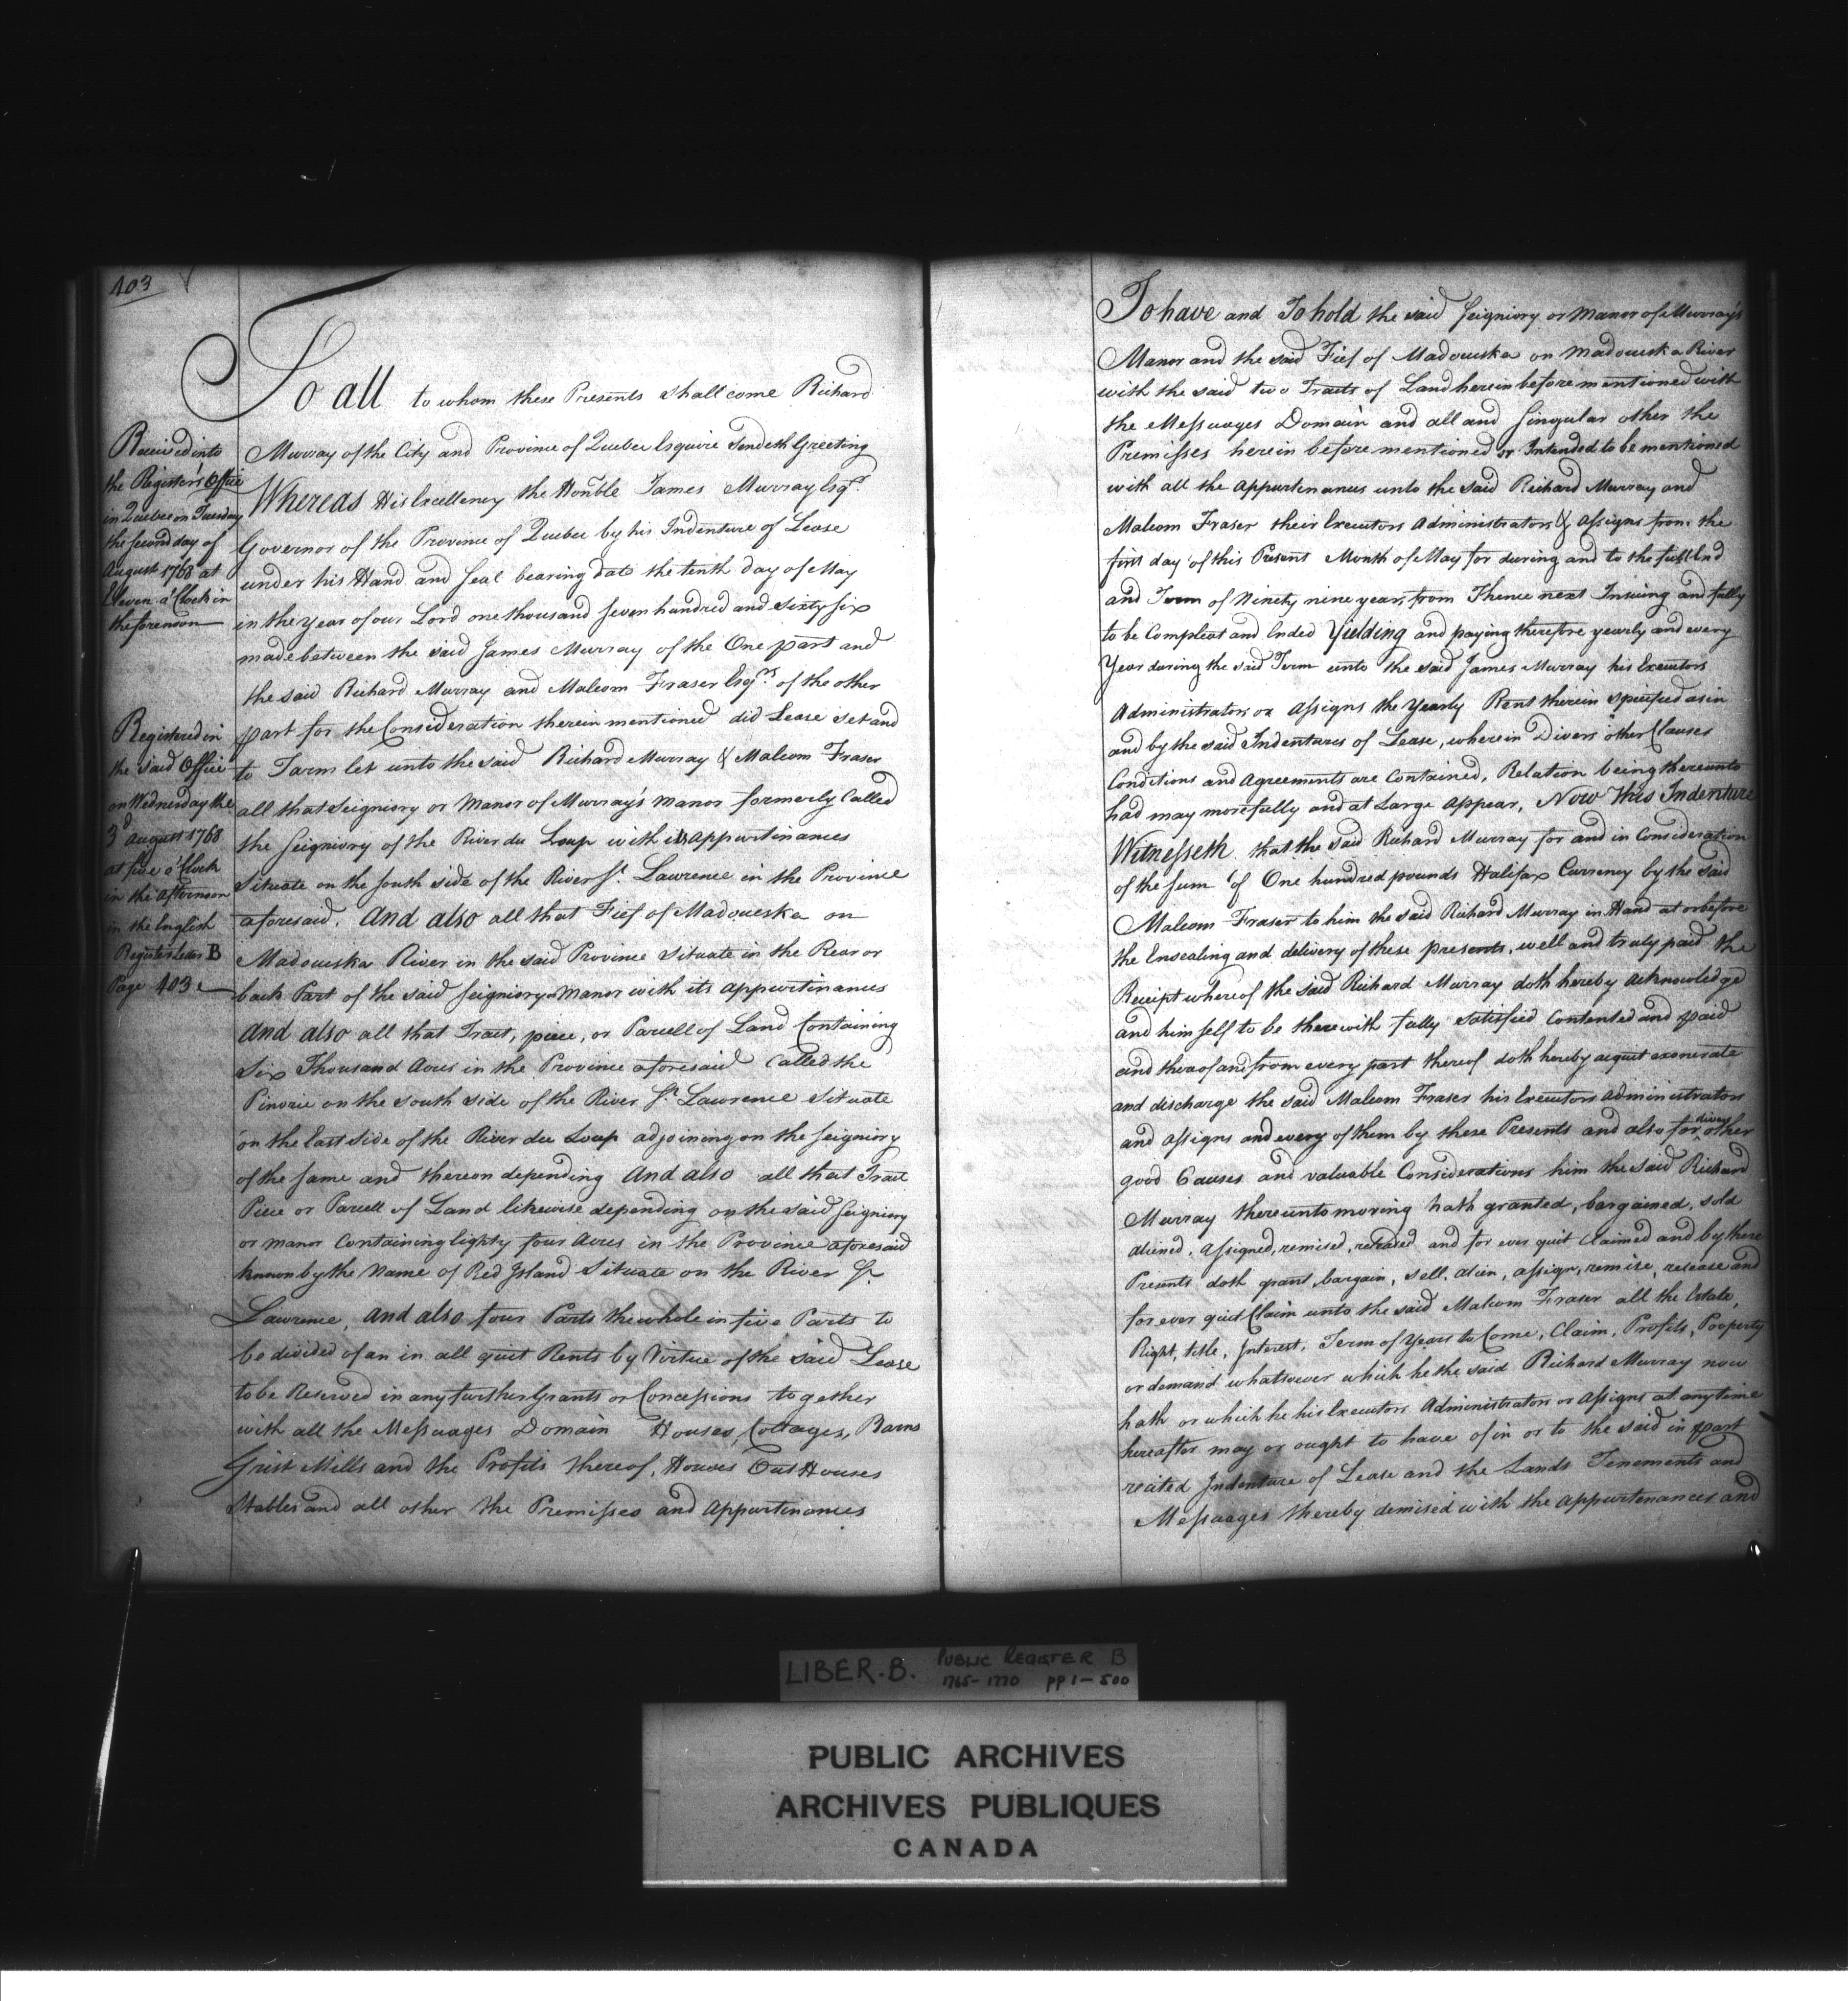 403
Received into
the Register's Office
in Quebec on Tuesday
the second day of
August 1768 at
Eleven o'Clock in
the forenoon
Registered in
the said Office
on Wednesday the
3d August 1768
at five o'Clock
in the afternoon
in the English
Register Letter B
Page 403
To all to whom these Presents shall come Richard
Murray of the City and Province of Quebec Esquire Sendeth Greeting
Whereas His Excellency the Honble James Murray Esqr.
Governor of the Province of Quebec by his Indenture of Lease
under his Hand and Seal bearing date the tenth day of May
in the year of our Lord one thousand seven hundred and sixty six
made between the said James Murray of the One part and
the said Richard Murray and Malcom Fraser Esqrs. of the other
part for the Consideration therein mentioned did Lease set and
to Farm let unto the said Richard Murray & Malcom Fraser
all that Seigniory or Manor of Murray's Manor formerly Called
the Seigniory of the River du Loup with its Appurtinances
Situate on the South side of the River St. Lawrence in the Province
aforesaid. And also all that Fief of Madoueska on
Madoueska River in the said Province Situate in the Rear or
back Part of the said Seigniory or Manor with its appurtinances
And also all that Tract, piece, or Parcell of Land Containing
Six Thousand Acres in the Province aforesaid Called the
Pinerie on the South side of the River St. Lawrence Situate
on the East Side of the River du Loup adjoining on the Seigniory
of the same and thereon depending And also all that Tract
Piece or Parcell of Land likewise depending on the said Seigniory
or Manor Containing Eighty four Acres in the Province aforesaid
known by the Name of Red Island Situate on the River St.
Lawrence, And also four Parts the whole in five Parts to
be divided of an in all quit Rents by Virtue of the said Lease
to be Reserved in any further Grants or Concessions together
with all the Messuages Domain Houses, Cottages, Barns
Grist Mills and the Profits thereof, Houses Out Houses
Stables and all other the Premisses and Appurtinances
To have and To hold the said Seigniory or Manor of Murray's
Manor and the said Fief of Madoueska on Madoueska River
with the said two Tracts of Land herein before mentioned with
the Messuages Domain and all and Singular other the
Premisses herein before mentioned or Intended to be mentioned
with all the Appurtinances unto the said Richard Murray and
Malcom Fraser their Executors Administrators & Assigns from the
first day of this Present Month of May for during and to the full End
and Term of Ninety nine years from Thence next Insuing and fully
to be Compleat and Ended Yielding and paying therefore yearly and every
Year during the said Term unto the said James Murray his Executors
Administrators or Assigns the Yearly Rent therein specified as in
and by the said Indentures of Lease, wherein Divers other Clauses
Conditions and Agreements are Contained, Relation being thereunto
had may more fully and at Large appear, Now this Indenture
Witnesseth that the said Richard Murray for and in Consideration
of the Sum of One hundred pounds Halifax Currency by the said
Malcom Fraser to him the said Richard Murray in Hand at or before
the Ensealing and delivery of these presents, well and truly paid the
Receipt whereof the said Richard Murray doth hereby acknowledge
and himself to be therewith fully satisfied Contented and paid
and thereof and from every part thereof doth hereby acquit exonerate
and discharge the said Malcom Fraser his Executors Administrators
and Assigns and every of them by these Presents and also for divers other
good Causes and valuable Considerations him the said Richard
Murray thereunto moving hath granted, bargained, sold
aliened, Assigned, remised, released and for ever quit Claimed and by these
Presents doth grant, bargain, sell, alien, assign, remise, release and
for ever quit Claim unto the said Malcom Fraser all the Estate,
Right, title, Interest, Term of Years to Come, Claim, Profits, Property
or demand whatsoever which he the said Richard Murray now
hath or which he his Executors Administrators or Assigns at any time
hereafter may or ought to have of in or to the said in part
recited Indenture of Lease and the Lands Tenements and
Messuages thereby demised with the appurtenances and
LIBER.B. PUBLIC REGISTER B
1765-1770 PP 1-500
PUBLIC ARCHIVES
ARCHIVES PUBLIQUES
CANADA